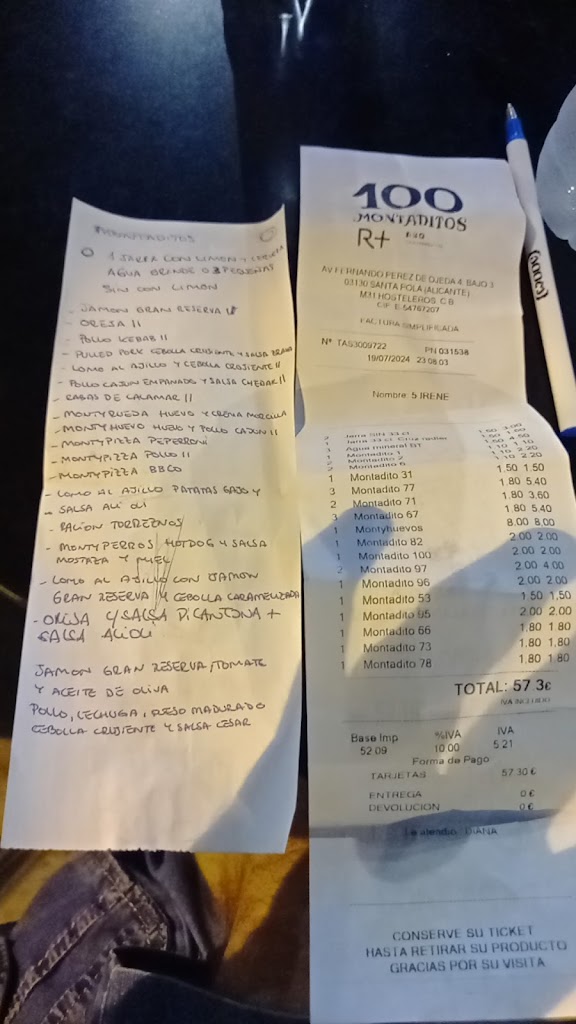 MONTADITOS
1 JARRA CON LIMON Y CERVEZA
AGUA GRANDE O 3 PEQUEÑAS
SIN CON LIMON
- JAMON GRAN RESERVA
- OREJA II
- POLLO KEBAB II
- PULLED PORK CEBOLLA CRUJIENTE Y SALSA BRAVA
- LOMO AL AJILLO Y CEBOLLA CRUJIENTE II
- POLLO CAJUN EMPANADO Y SALSA CHEDAR II
- RABAS DE CALAMAR II
- MONTYRUEDA HUEVO Y CREMA MORCILLA
- MONTYHUEVO HUEVO Y POLLO CAJUN II
- MONTYPIZZA PEPERRONI
- MONTYPIZZA POLLO II
- MONTYPIZZA BBCO
- LOMO AL AJILLO PATATAS GAJO Y
- SALSA ALI OLI
- RACION TORREZNOS
- MONTYPERROS HOTDOG Y SALSA
MOSTAZA Y MIEL
- LOMO AL AJILLO CON JAMON
GRAN RESERVA Y CEBOLLA CARAMELIZADA
- OREJA Y SALSA PICANTONA +
SALSA ALIOLI
JAMON GRAN RESERVA, TOMATE
Y ACEITE DE OLIVA
POLLO, LECHUGA, QUESO MADURADO
CEBOLLA CRUJIENTE Y SALSA CESAR
100
MONTADITOS
R+
AV FERNANDO PEREZ DE OJEDA 4 BAJO 3
03130 SANTA POLA (ALICANTE)
M31 HOSTELEROS, C.B
CIF E-54767207
FACTURA SIMPLIFICADA
Nº TAS3009722 PN 031538
19/07/2024 23:08:03
Nombre: 5 IRENE
2 Jarra SIN 33 cl. 1.50 3.00
1 Jarra 33 cl. Cruz radler 1.50 1.50
3 Agua mineral BT 1.50 4.50
1 Montadito 1 1.10 1.10
2 Montadito 1.10 2.20
2 Montadito 6
1 Montadito 31 1.50 1.50
3 Montadito 77 1.80 5.40
2 Montadito 71 1.80 3.60
3 Montadito 67 1.80 5.40
1 Montyhuevos 8.00 8.00
1 Montadito 82 2.00 2.00
1 Montadito 100 2.00 2.00
2 Montadito 97 2.00 4.00
1 Montadito 96 2.00 2.00
1 Montadito 53 1.50 1.50
1 Montadito 85 2.00 2.00
1 Montadito 66 1.80 1.80
1 Montadito 73 1.80 1.80
1 Montadito 78 1.80 1.80
TOTAL: 57.3€
IVA INCLUIDO
Base Imp %IVA IVA
52.09 10.00 5.21
Forma de Pago
TARJETAS 57.30 €
ENTREGA 0 €
DEVOLUCION 0 €
Le atendió: DIANA
CONSERVE SU TICKET
HASTA RETIRAR SU PRODUCTO
GRACIAS POR SU VISITA